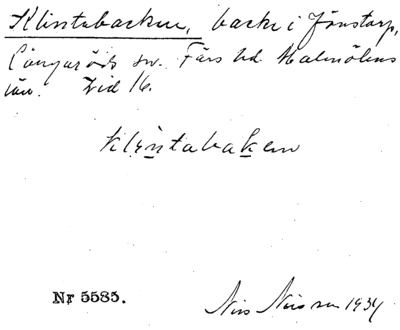 Klintabacken, backe i Jönstorp,
Långaröds sn. Färs hd. Malmöhus
län. Lid 16.
klintabaken
Nr 5585.
Nils Nilsson 1934